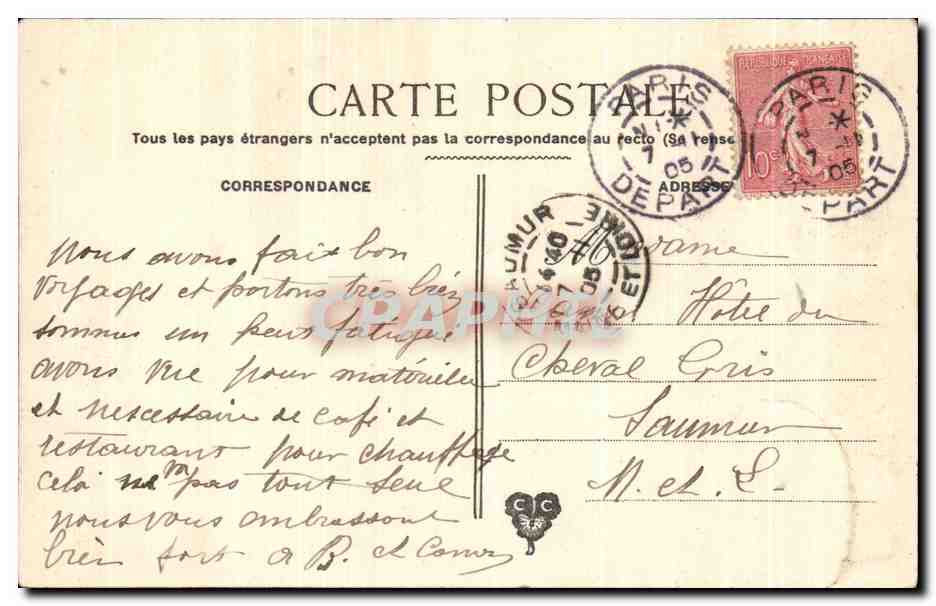 CARTE POSTALE
Tous les pays étrangers n'acceptent pas la correspondance au recto (Se rense
CORRESPONDANCE
ADRESSE
REPUBLIQUE FRANÇAISE
10c
PARIS
7
05
DEPART
PARIS
7
05
DEPART
SAUMUR
14 40
7
05
ET LOIRE
CPARAMA
nous avons fait bon
voyages et portons très bien
sommes un peut fatigué
avons vue pour matériellee
et nescessaire de café et
restaurant pour chauffage
cela va pas tout seul
nous vous ambrassont
bien fort a B. et
Madame
Hôtel du
Cheval Gris
Saumur
M. et L.
C C